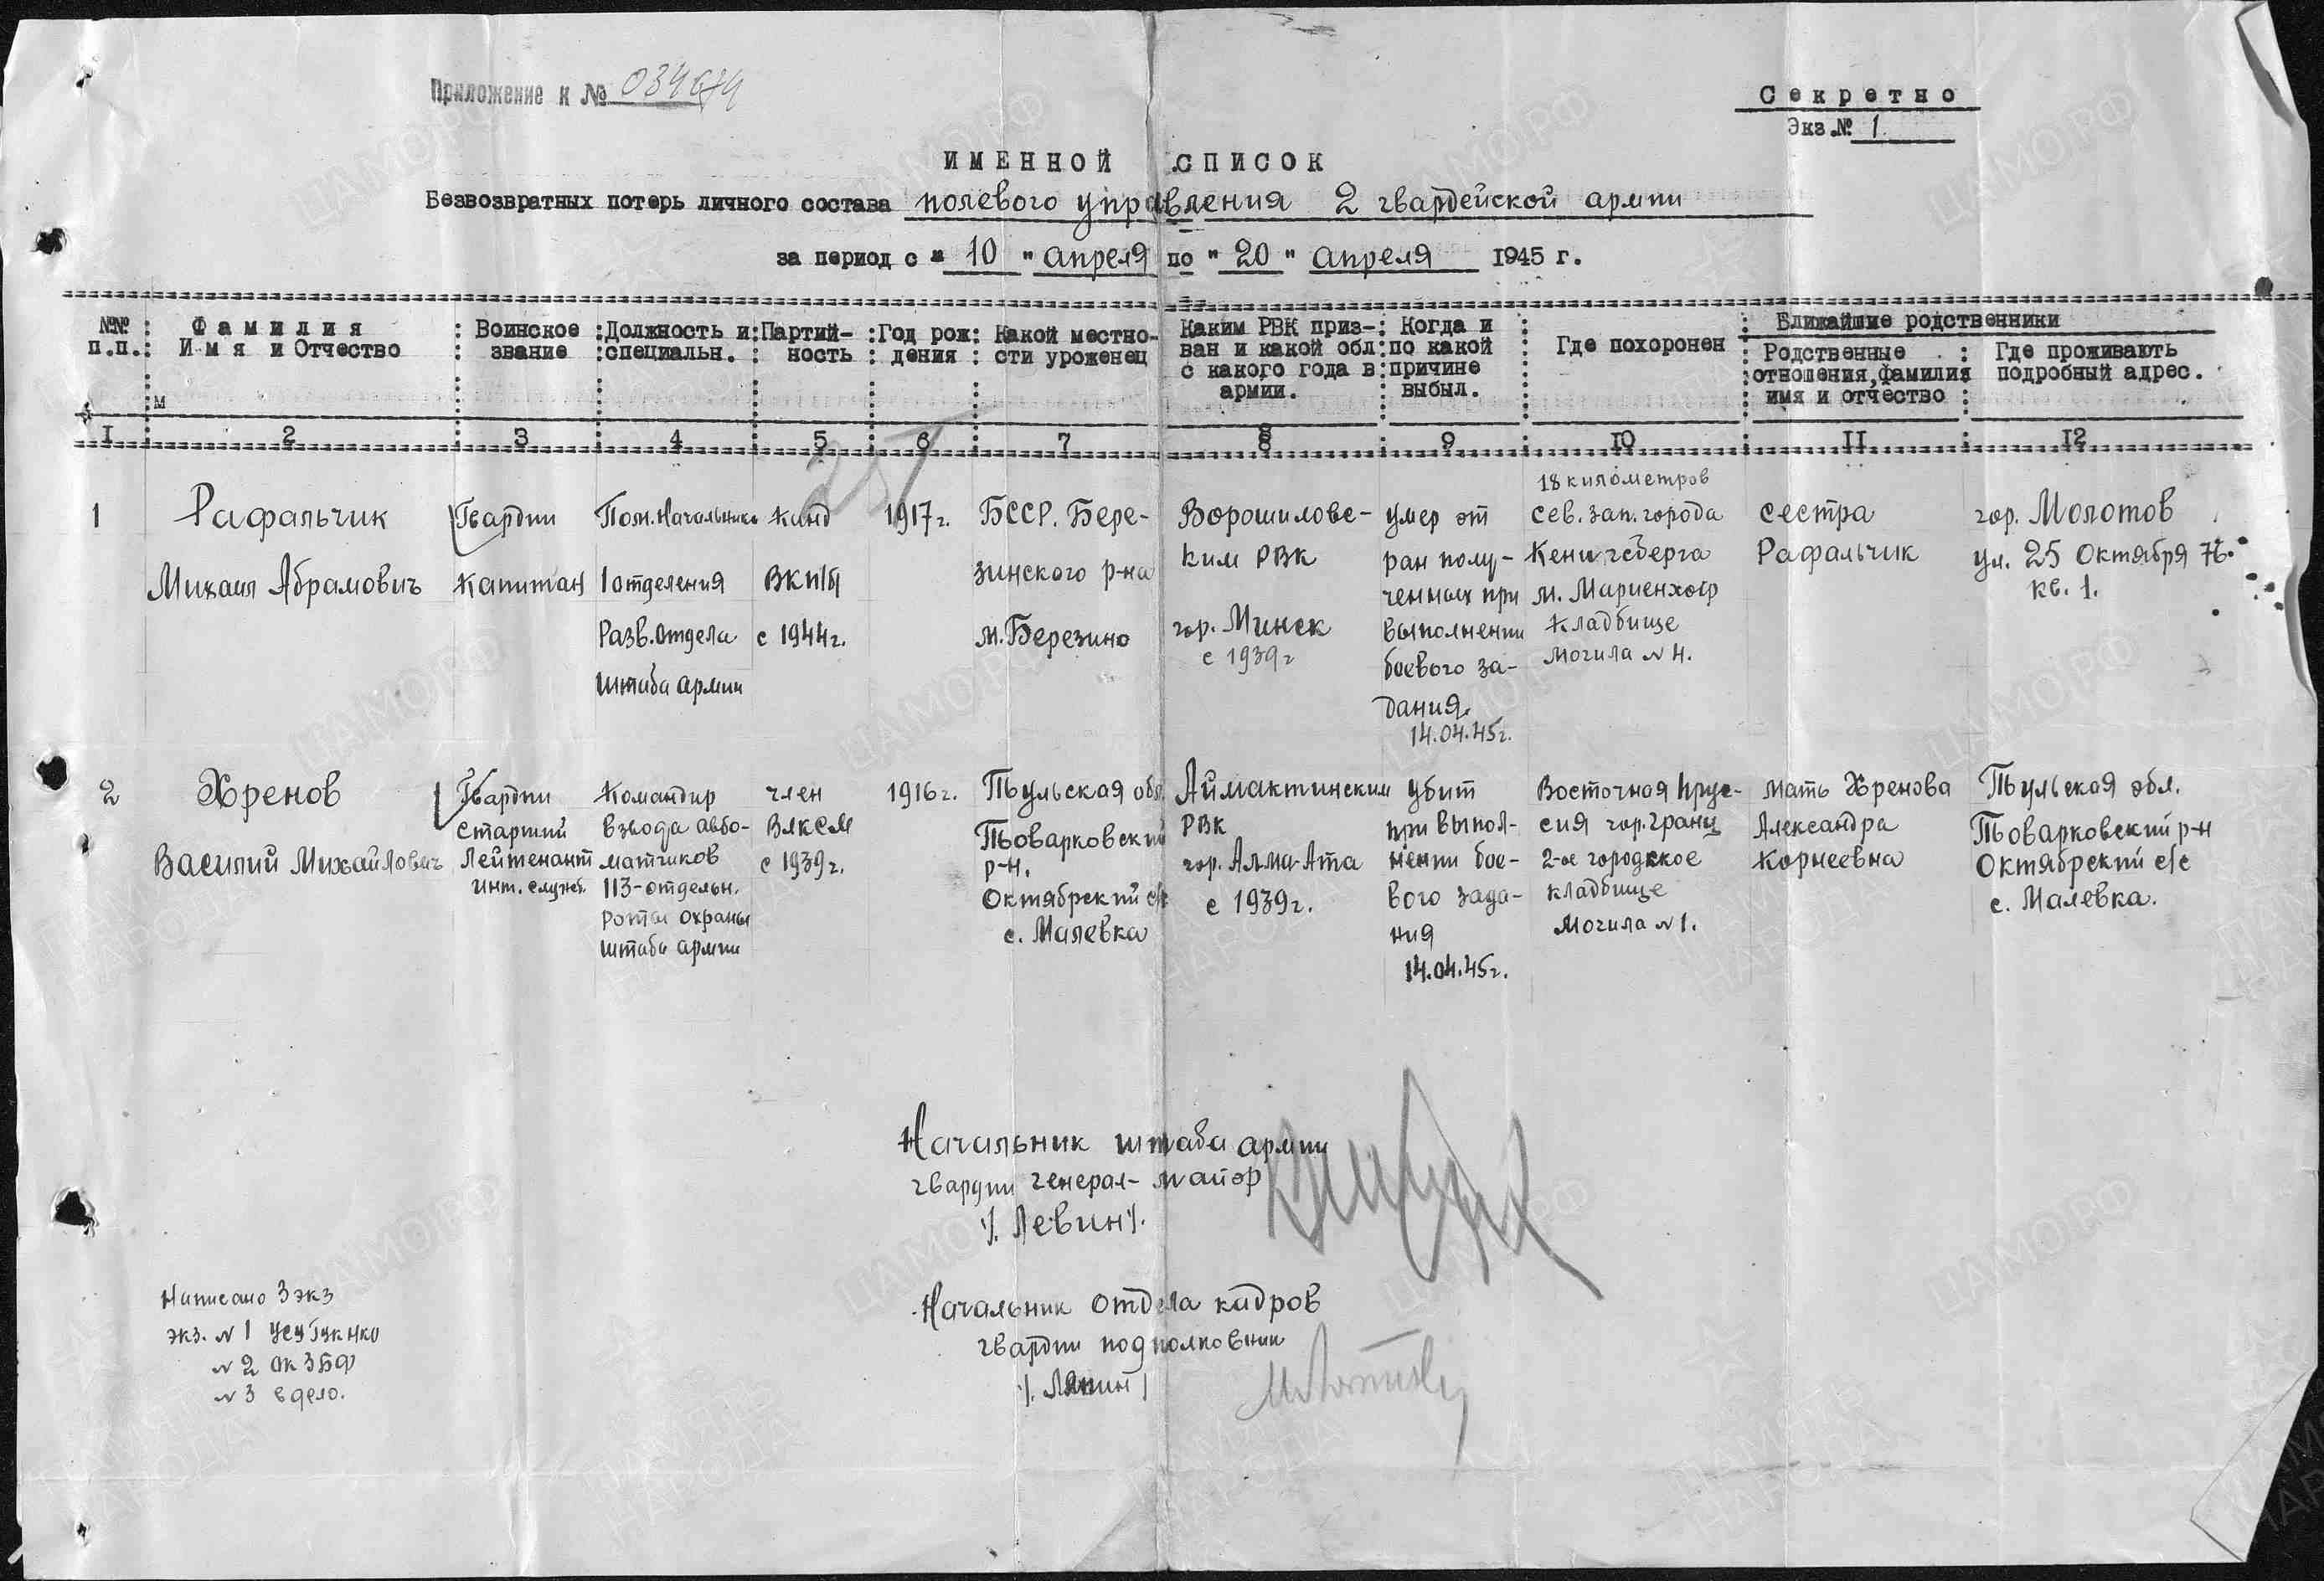 Приложение к №
Секретно
Экз.№ 1
ИМЕННОЙ СПИСОК
Безвозвратных потерь личного состава полевого управления 2 гвардейской армии
за период с " 10 " апреля по " 20 " апреля 1945 г.
№№ п.п.
Фамилия
Имя и Отчество
Воинское
звание
Должность и
специальн.
Партий-
ность
Год рож
дения
Какой местно-
сти уроженец
Каким РВК приз-
ван и какой обл
с какого года в
армии.
Когда и
по какой
причине
выбыл.
Где похоронен
Ближайшие родственники
Родственные
отношения, фамилия
имя и отчество
Где проживають
подробный адрес.
I 2 3 4 5 6 7 8 9 10 II 12
1
Рафальчик
Михаил Абрамович
Гвардии
Капитан
Пом. Начальника
1 отделения
Разв. Отдела
штаба армии
Канд
ВКП/б
с 1944г.
1917г.
БССР. Бере-
зинского р-на
м. Березино
Ворошиловс-
ким РВК
гор. Минск
с 1939г
умер от
ран полу-
ченных при
выполнении
боевого за-
дания.
14.04.45г.
18 километров
сев. зап. города
Кенигсберга
м. Мариенхоф
Кладбище
Могила N 4.
сестра
Рафальчик
гор. Молотов
ул. 25 Октября 76.
кв. 1.
2
Хренов
Василий Михайлович
Гвардии
Старший
Лейтенант
инт. служб.
Командир
взвода авто-
матчиков
113-отдельн.
роты охраны
штаба армии
член
ВЛКСМ
с 1939г.
1916г.
Тульская обл.
Товарковский
р-н.
Октябрский с/с
с. Малевка
Аймактинским
РВК
гор. Алма-Ата
с 1939г.
убит
при выпол-
нении бое-
вого зада-
ния
14.04.45г.
Восточная Прус-
сия гор. Гранц
2-ое городское
кладбище
Могила N 1.
Мать Хренова
Александра
Корнеевна
Тульская обл.
Товарковский р-н
Октябрский с/с
с. Малевка.
Начальник штаба армии
гвардии генерал-майор
/. Левин/.
Начальник отдела кадров
гвардии подполковник
/. Ляпин /
Написано 3 экз
экз. N 1 УСУ ГУК НКО
N 2 ОК 3БФ
N 3 в дело.
ЦАМО.РФ
ПАМЯТЬ НАРОДА